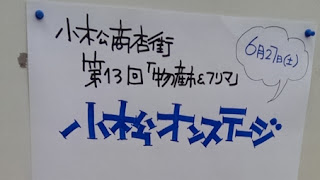 小松商店街
第13回「物産市&フリマ」
6月27日(土)
小松オンステージ